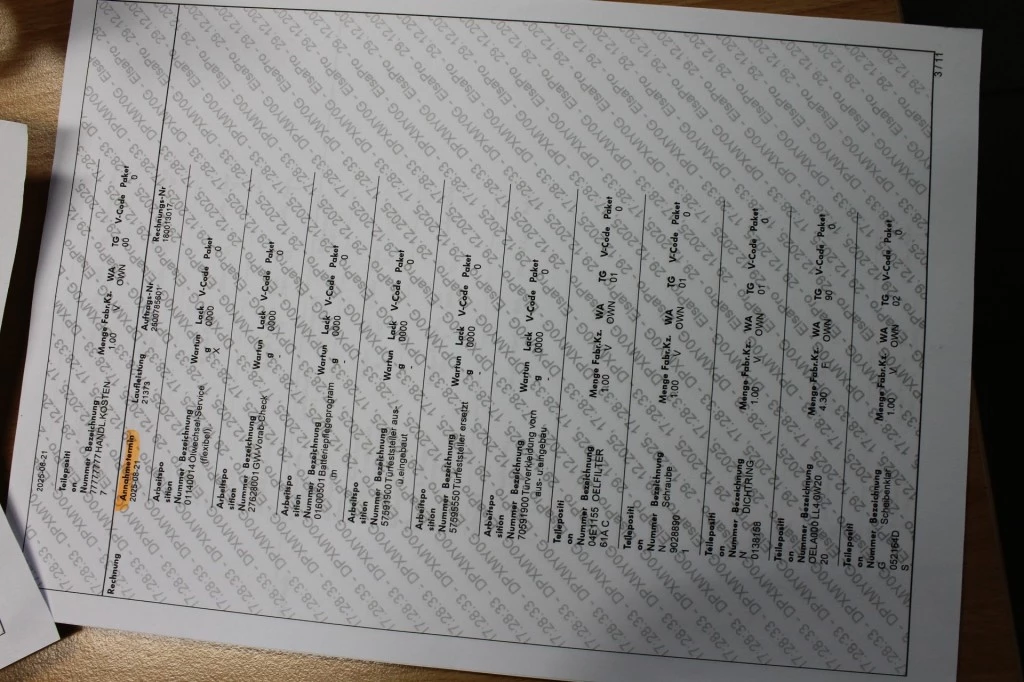 2025-08-21
Teilepositi
on
Nummer Bezeichnung Menge Fabr.Kz. WA TG V-Code Paket
777777777 HANDLKOSTEN 1.00 V OWN 00 0
7
Annahmetermin Laufleistung Auftrags-Nr. Rechnungs-Nr
2025-08-21 21373
Rechnung
Arbeitspo
sition
Nummer Bezeichnung Wartun Lack V-Code Paket
01140014 Ölwechsel-Service g 0000 0
(flexibel) X
Arbeitspo
sition
Nummer Bezeichnung Wartun Lack V-Code Paket
27628001 GW-Vorab-Check g 0000 0
-
Arbeitspo
sition
Nummer Bezeichnung Wartun Lack V-Code Paket
01600501 Batteriepflegeprogram g 0000 0
m -
Arbeitspo
sition
Nummer Bezeichnung Wartun Lack V-Code Paket
57591900 Türfeststeller aus- g 0000 0
u.eingebaut -
Arbeitspo
sition
Nummer Bezeichnung Wartun Lack V-Code Paket
57595550 Türfeststeller ersetzt g 0000 0
-
Arbeitspo
sition
Nummer Bezeichnung Wartun Lack V-Code Paket
70591900 Türverkleidung vorn g 0000 0
aus- u.eingebau -
Teilepositi
on
Nummer Bezeichnung Menge Fabr.Kz. WA TG V-Code Paket
04E1155 OELFILTER 1.00 V OWN 01 0
61A C
Teilepositi
on
Nummer Bezeichnung Menge Fabr.Kz. WA TG V-Code Paket
N Schraube 1.00 V OWN 01 0
9028890
1
Teilepositi
on
Nummer Bezeichnung Menge Fabr.Kz. WA TG V-Code Paket
N DICHTRING 1.00 V OWN 01 0
0138168
Teilepositi
on
Nummer Bezeichnung Menge Fabr.Kz. WA TG V-Code Paket
OELA000 1L4 0W20 4.30 OWN 90 0
20
Teilepositi
on
Nummer Bezeichnung Menge Fabr.Kz. WA TG V-Code Paket
G Scheibenklar 1.00 V OWN 02 0
052164D
S
3 / 11